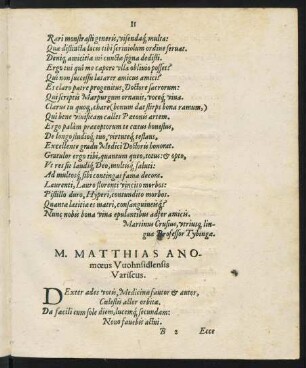 II
Rari monstrasti generis, visendáq́; multa:
Quæ distincta locis tibi scriniolum ordine servat.
Deniq; amicitiæ mi cuncta signa dedisti.
Ergo tui quî mo capere ulla oblivio posset?
Quî non successu lætarer amicus amici?
Es claro patre progenitus, Doctore sacrorum:
Qui scriptis Marpurgum ornavit, voceq́; viva.
Clarus tu quoq; chare (bonum das stirps bona ramum,)
Qui bene vivificam calles Pæonis artem.
Ergo palàm præceptorum te cœtus honustus,
De longo studioq́; tuo, virtuteq́; testans,
Excellente gradu Medici Doctoris honorat.
Gratulor ergo tibi, quantum queo, totus: & opto,
Ut res sis laudiq́; Deo, multisq́; saluti:
Ad multosq́; sibi contingat fama decora.
Laurenti, Lauro florenti vincito morbos:
Pistillo dairo, Hyperi, contundito morbos.
Quanta lætitia es matri, consanguineisq́;?
Nunc nobis bona vina epulantibus adfer amicis.
Martinus Crusius, utriusq; lin-
guæ Professor Tybingæ.
M. MATTHIAS ANO-
mœus Vuohnsidlensis
Variscus.
DExter ades votis, Medicinæ fautor & autor,
Cælestis aller orbitæ.
Da facili cum sole diem, lucemq́; secundam:
Novo favebis actui.
B 2 Ecce